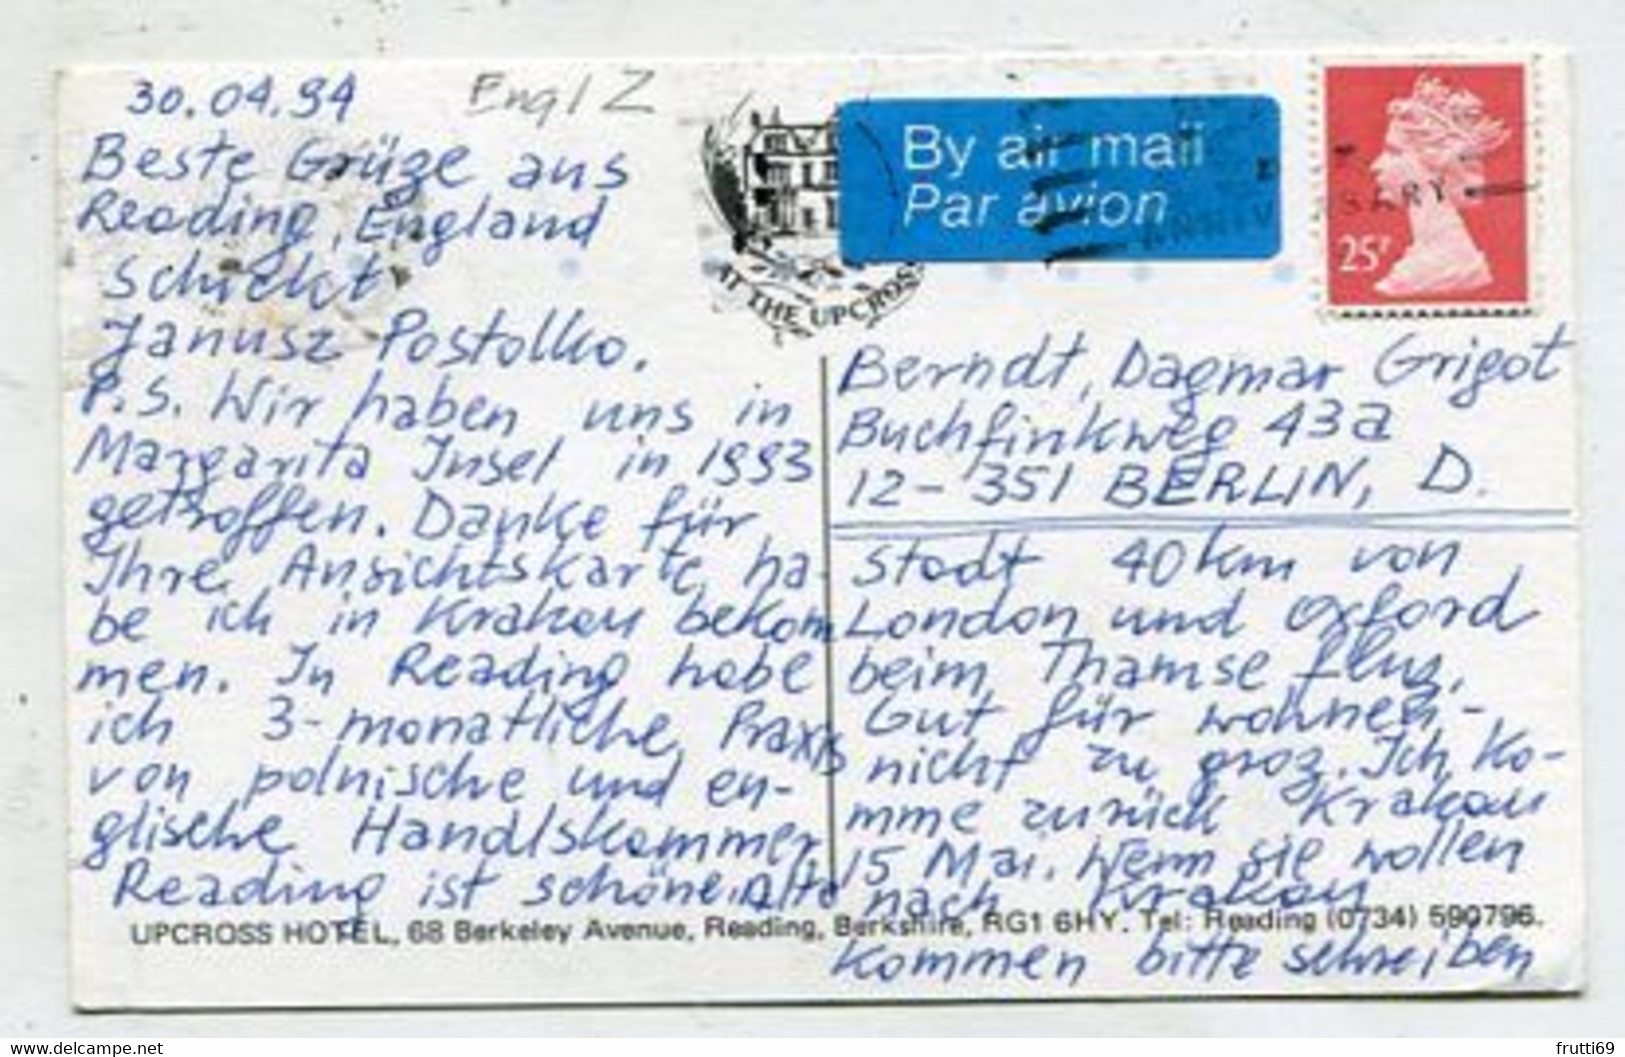 30.04.94
Engl Z
Beste Grüze aus
Reading, England
schickt
Janusz Postolko.
P.S. Wir haben uns in
Margarita Insel in 1993
getroffen. Danke für
Ihre Ansichtskarte, ha-
be ich in Krakau bekom
men. In Reading habe
ich 3-monatliche Praxis
von polnische und en-
glische Handlskammer
Reading ist schöne, Alte
By air mail
Par avion
AT THE UPCROSS
ANNIVERSARY
25P
Berndt, Dagmar Grigot
Buchfinkweg 43a
12-351 BERLIN, D.
Stadt 40 km von
London und Oxford
beim Thamse flus,
Gut für wohnen-
nicht zu groz. Ich ko-
mme zurück Krakau
15 Mai. Wenn sie wollen
nach Krakau
kommen bitte schreiben
UPCROSS HOTEL, 68 Berkeley Avenue, Reading, Berkshire, RG1 6HY. Tel: Reading (0734) 590796.
Delcampe.net
frutti69